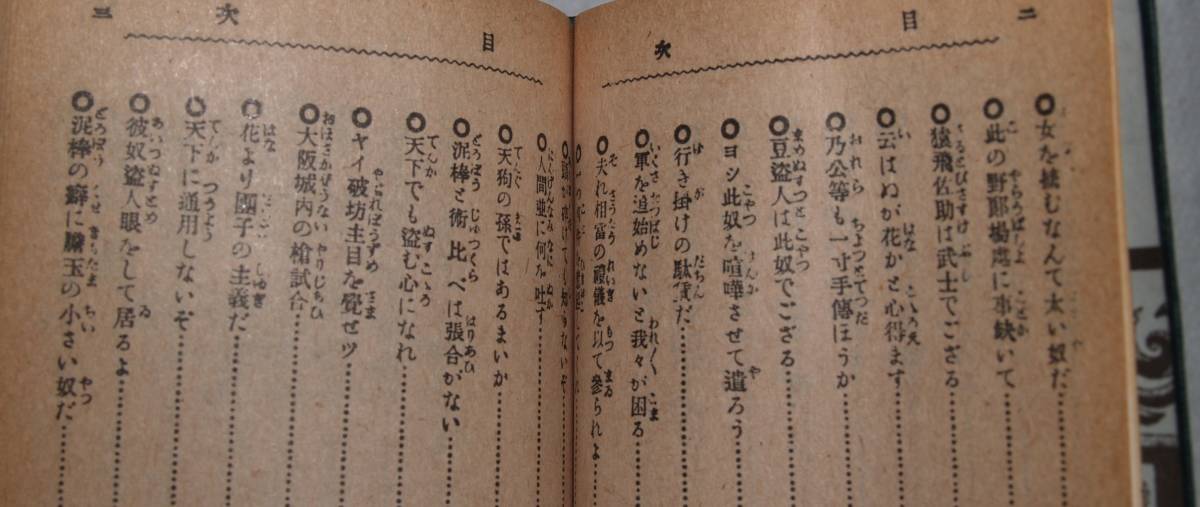 二
目
次
○女を挑むなんて太い奴だ
○此の野郎場席に事缺いて
○猿飛佐助は武士でござる
○云はぬが花かと心得ます
○乃公等も一寸手傳ほうか
○豆盗人は此奴でござる
○ヨシ此奴を喧嘩させて遣ろう
○行き掛けの駄賃だ
○軍を追始めないと我々が困る
○夫れ相當の禮儀を以て參られよ
○人間並に何か吐す
○天狗の孫ではあるまいか
○泥棒と術比べは張合がない
○天下でも盗む心になれ
○ヤイ破坊主目を覺せツ
○大阪城内の槍試合
○花より團子の主義だ
○天下に通用しないぞ
○彼奴盗人眼をして居るよ
○泥棒の癖に膽玉の小さい奴だ
目
次
三